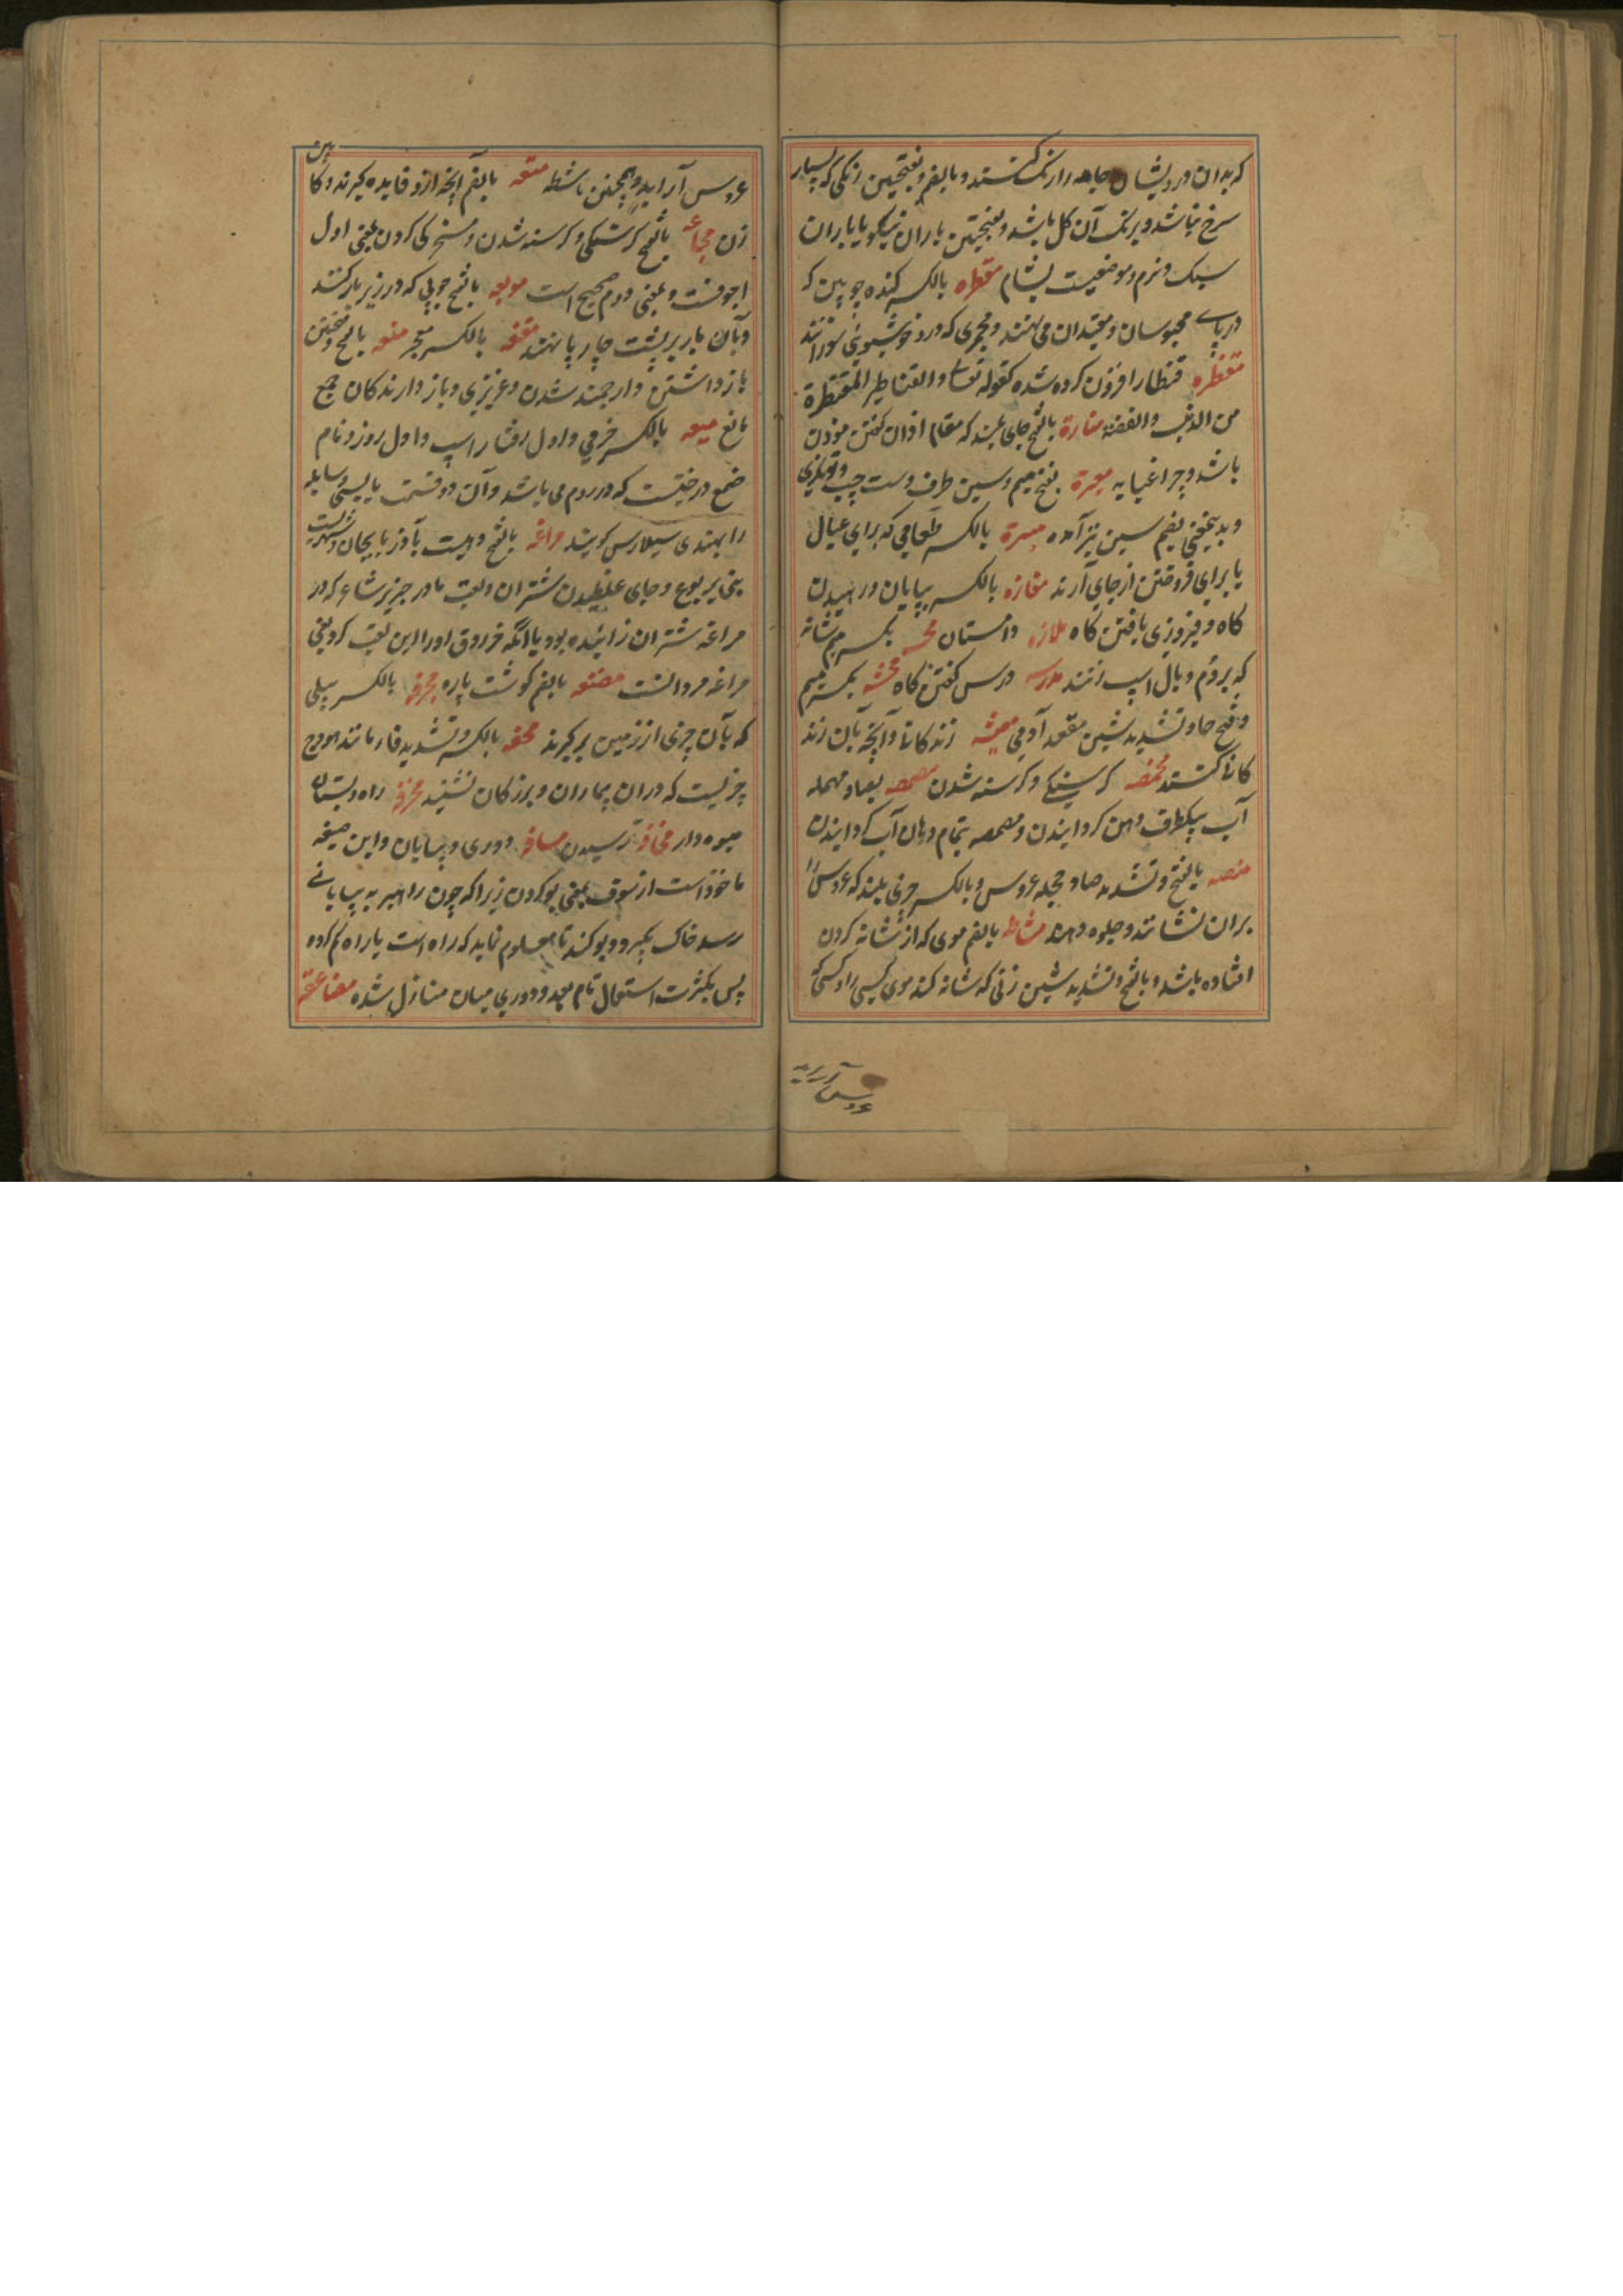 که بدان درویشان جامه را رنگ کنند و بالضم و بفتحتین رنگی که بسیار
سرخ نباشد و برنک آن کل باشد و بفتحتین باران نیکو یا باران
سبک و نرم و موضعیست بشام مقطره بالکسر کنده چوبین که
در پای محبوسان و مقیدان می نهند و مجمری که درو خوشبوئی سوزانند
مقنطره قنطار افزون کرده شده کقوله تعالی و القناطیر المقنطرة
من الذهب والفضة منارة بالفتح جای بلند که مقام اذان کفتن موذن
باشد و چراغپایه میسرة بفتح میم و سین طرف دست چپ و توانکری
و بدینمعنی بضم سین نیز آمده میرة بالکسر طعامی که برای عیال
یا برای فروختن از جای آرند مفازه بالکسر بیابان و رهیدن
کاه و فیروزی یافتن کاه ملازه داستان بکسر میم شانه
که بر دم و یال اسپ زنند مدرسه درس کفتن کاه محشه بکسر میم
و فتح حا و تشدید شین مقعد آدمی معیشه زندکانی و آنچه بآن زند
کانی کنند مخمصه کرسنکی و کرسنه شدن مصمصه بصاد مهمله
آب بیکطرف دهن کردانیدن و مضمضه بتمام دهان آب کردانیدن
منصه بالفتح و تشدید صاد حجله عروس و بالکسر چیزی بلند که عروس را
بران نشانند و جلوه دهند مشاطه بالضم موی که از شانه کردن
افتاده باشد و بالفتح و تشدید شین زنی که شانه کند موی کسی را و کسی که
عروس آراید
عروس آراید و همچنین ماشطه متعه بالضم آنچه ازو فایده کیرند و کا
بین
زن مجاعه بالفتح کرسنکی و کرسنه شدن و مسخرکی کردن بمعنی اول
اجوفست و بمعنی دوم صحیح است مربعه بالفتح چوبی که در زیر بار کنند
و بآن بار بر پشت چارپا نهند مقنعه بالکسر معجر منعه بالفتح و بفتحتین
بازداشتن و ارجمند شدن و عزیزی و بازدارندکان جمع
مانع میعه بالکسر خرمی و اول رفتار اسپ و اول روز و نام
صمغ درختیست که در روم می باشد و آن دو قسمت یابسه و سایله
را بهندی سیلارس کویند مراغه بالفتح دهیست بآذربایجان و شهریست
بنی یربوع و جای غلطیدن شتران و لقب مادر جریر شاعر که در
مراغه شتران زائیده بود یا آنکه فرزدق او را این لقب کرد یعنی
مراغه مردانست مضغه بالضم کوشت پاره مجرفه بالکسر بیلی
که بآن چیزی از زمین برکیرند محفه بالکسر و تشدید فا مانند هودج
چیزیست که دران بیماران و بزرکان نشینند مخرفه راه و بستان
میوه دار مخافه ترسیدن مسافه دوری و بیابان و این صیغه
ماخوذ است از سوف بمعنی بو کردن زیرا که چون راهبر به بیابانی
رسد خاک بکیرد و بو کند تا معلوم نماید که راه است یا راه کم کرده
پس بکثرت استعمال نام بعد و دوری میان منازل شده مضاعفه